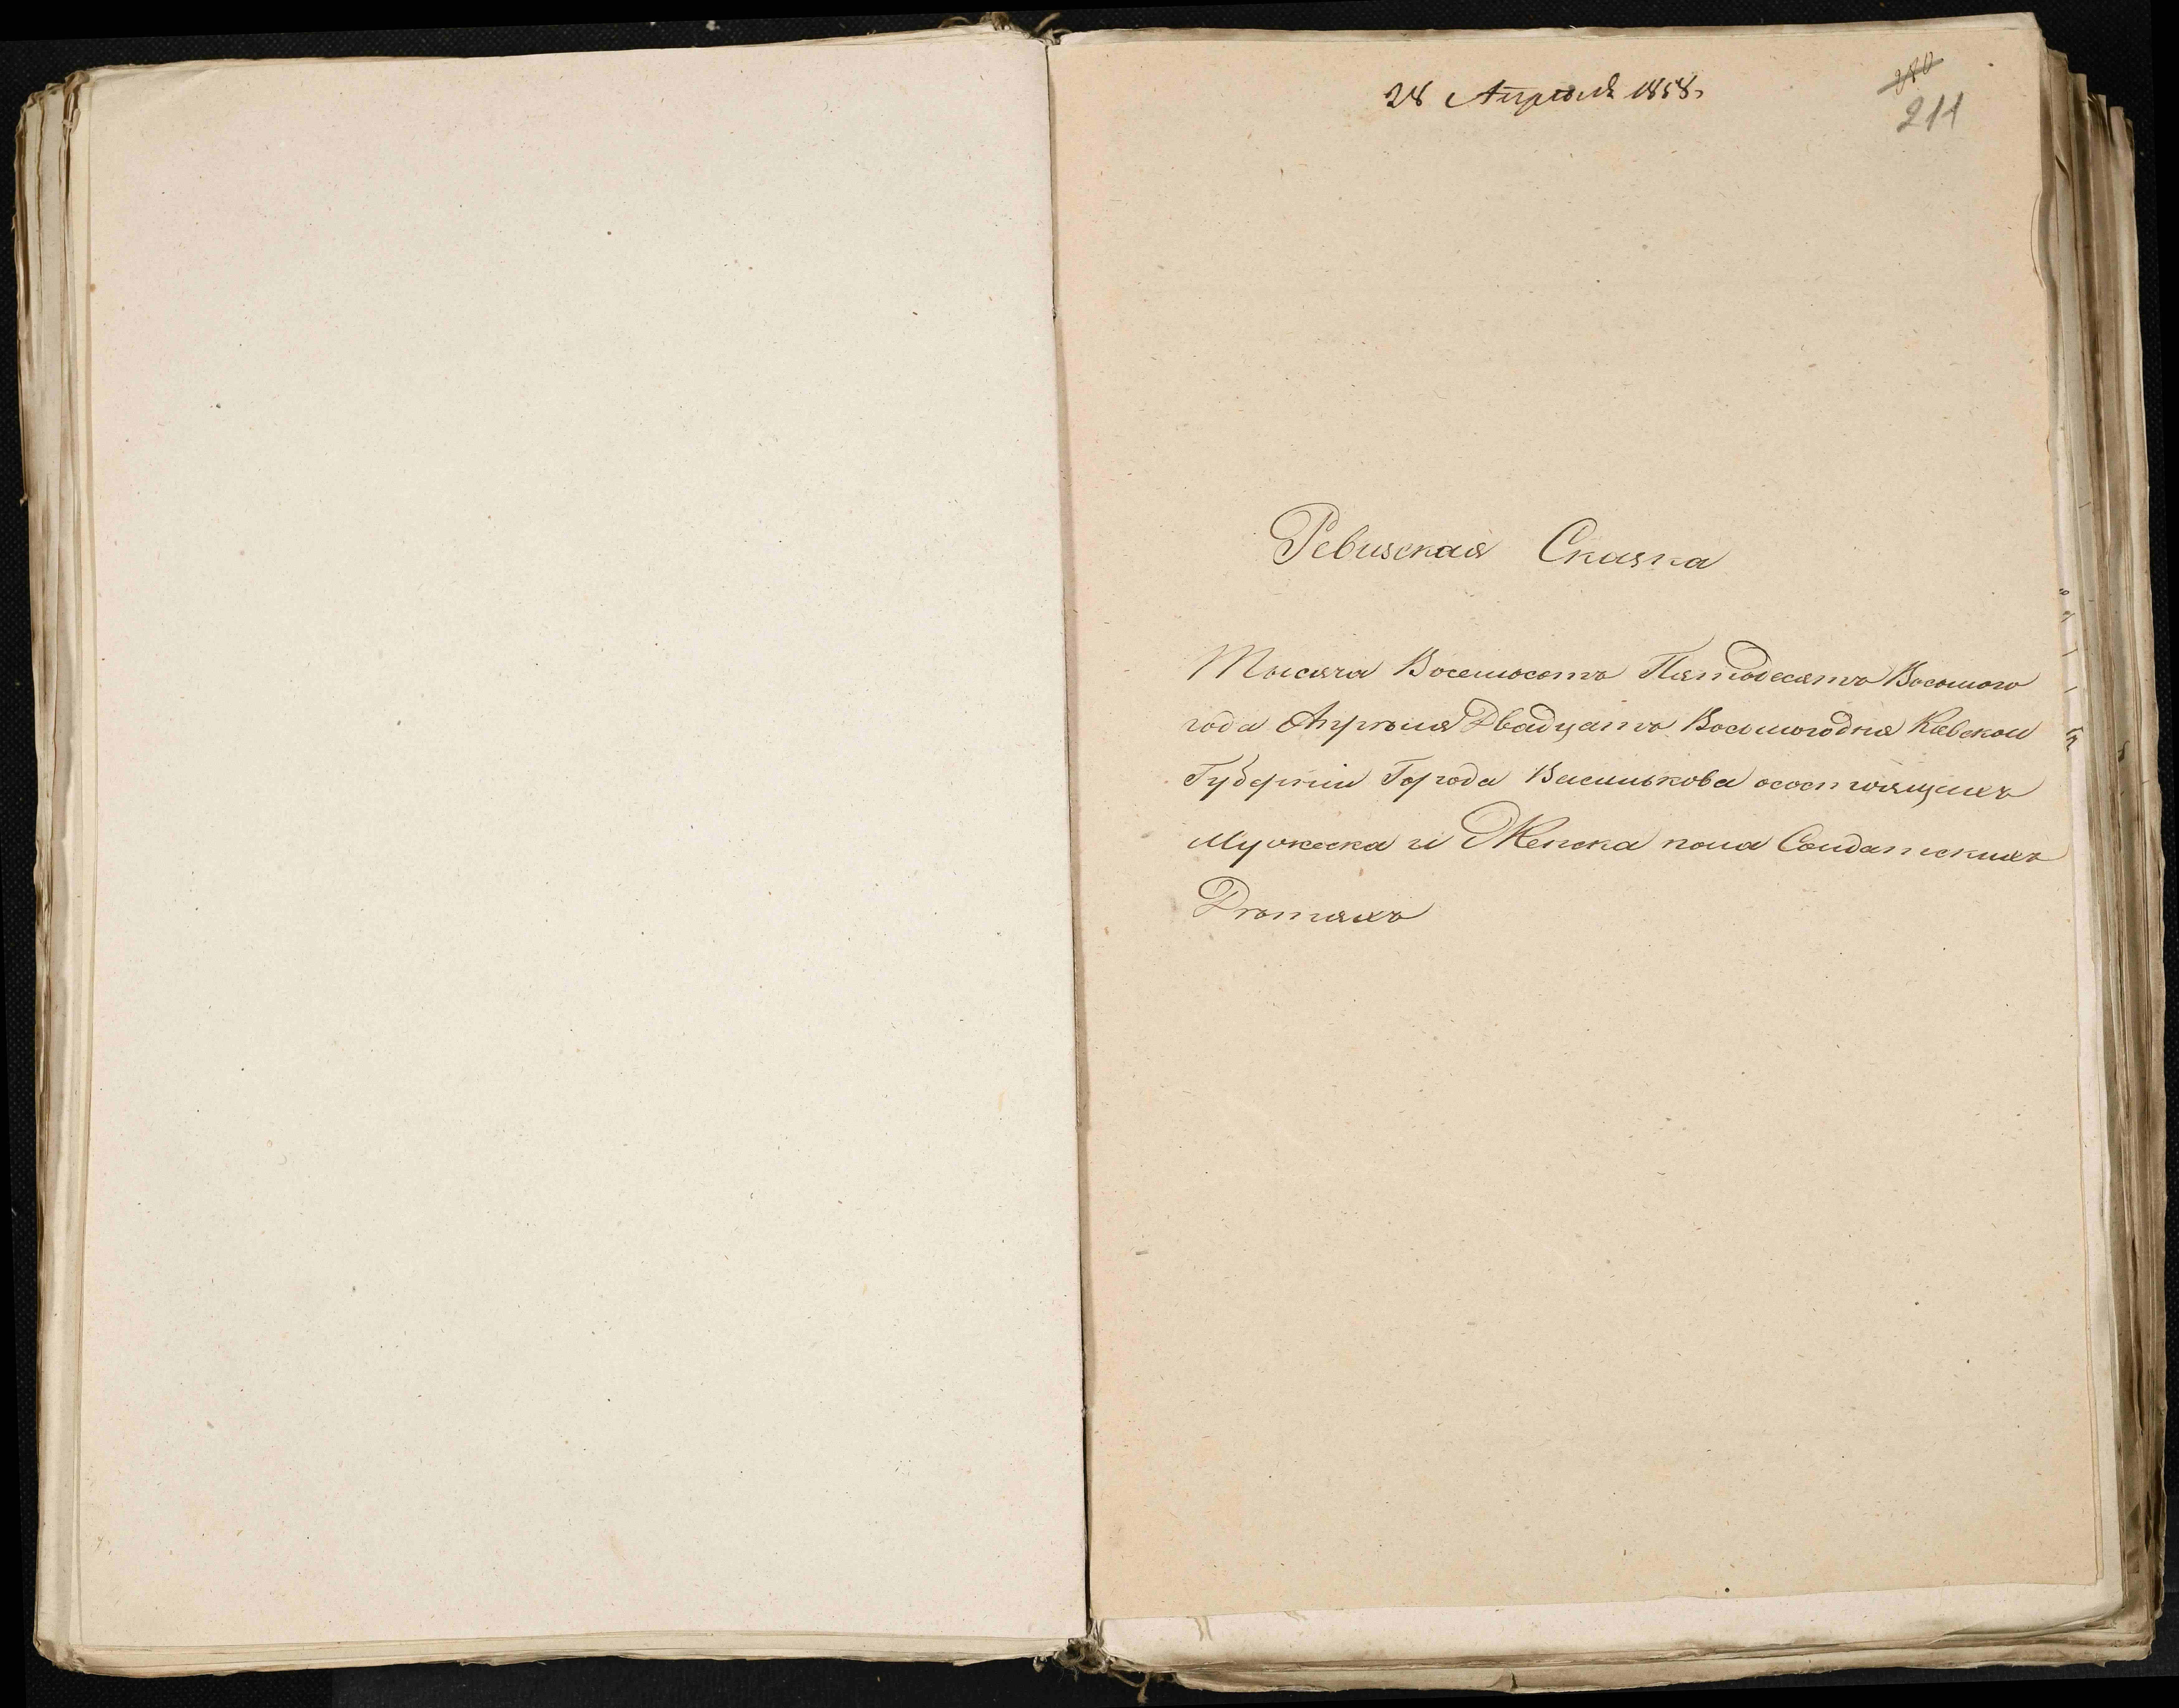 28 Апрѣля 1858.
280
211
Ревизская Сказка
Тысяча Восемьсотъ Пятьдесятъ Восьмого
года Апрѣля Двадцать Восьмогодня Киевской
Губерніи Города Василькова осостоящихъ
Мужеска и Женска пола Солдатскихъ
Дѣтяхъ